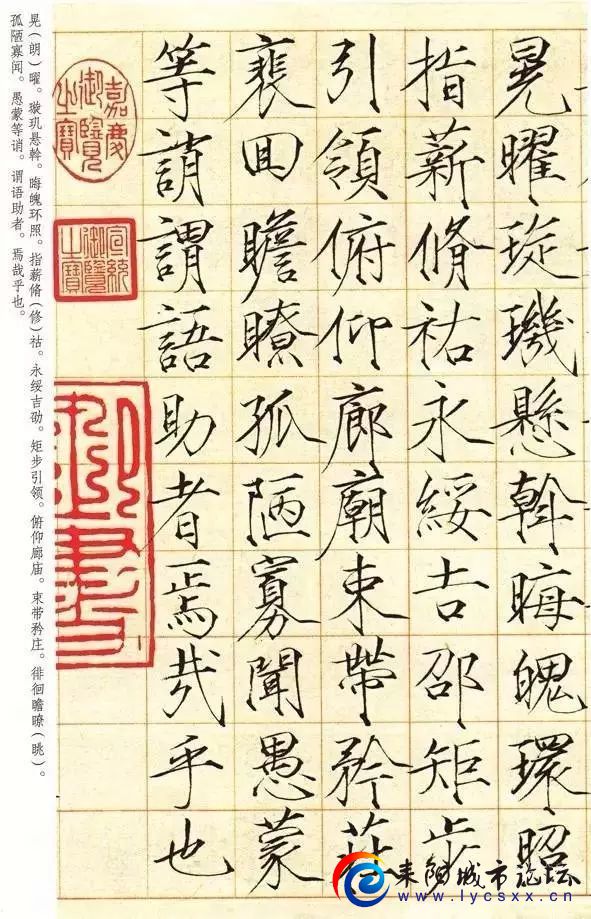 晃曜琁璣懸斡晦魄環昭
指薪脩祐永綏吉邵矩步
引領俯仰廊廟束帶矜莊
裵回瞻瞭孤陋寡聞愚蒙
等誚謂語助者焉哉乎也
嘉慶御覽之寶
宣統御覽之寶
御書
晃(朗)曜。璇玑悬斡。晦魄环照。指薪脩(修)祜。永绥吉劭。矩步引领。俯仰廊庙。束带矜庄。徘徊瞻瞭(眺)。
孤陋寡闻。愚蒙等诮。谓语助者。焉哉乎也。
耒阳城市论坛
www.lycsxx.cn